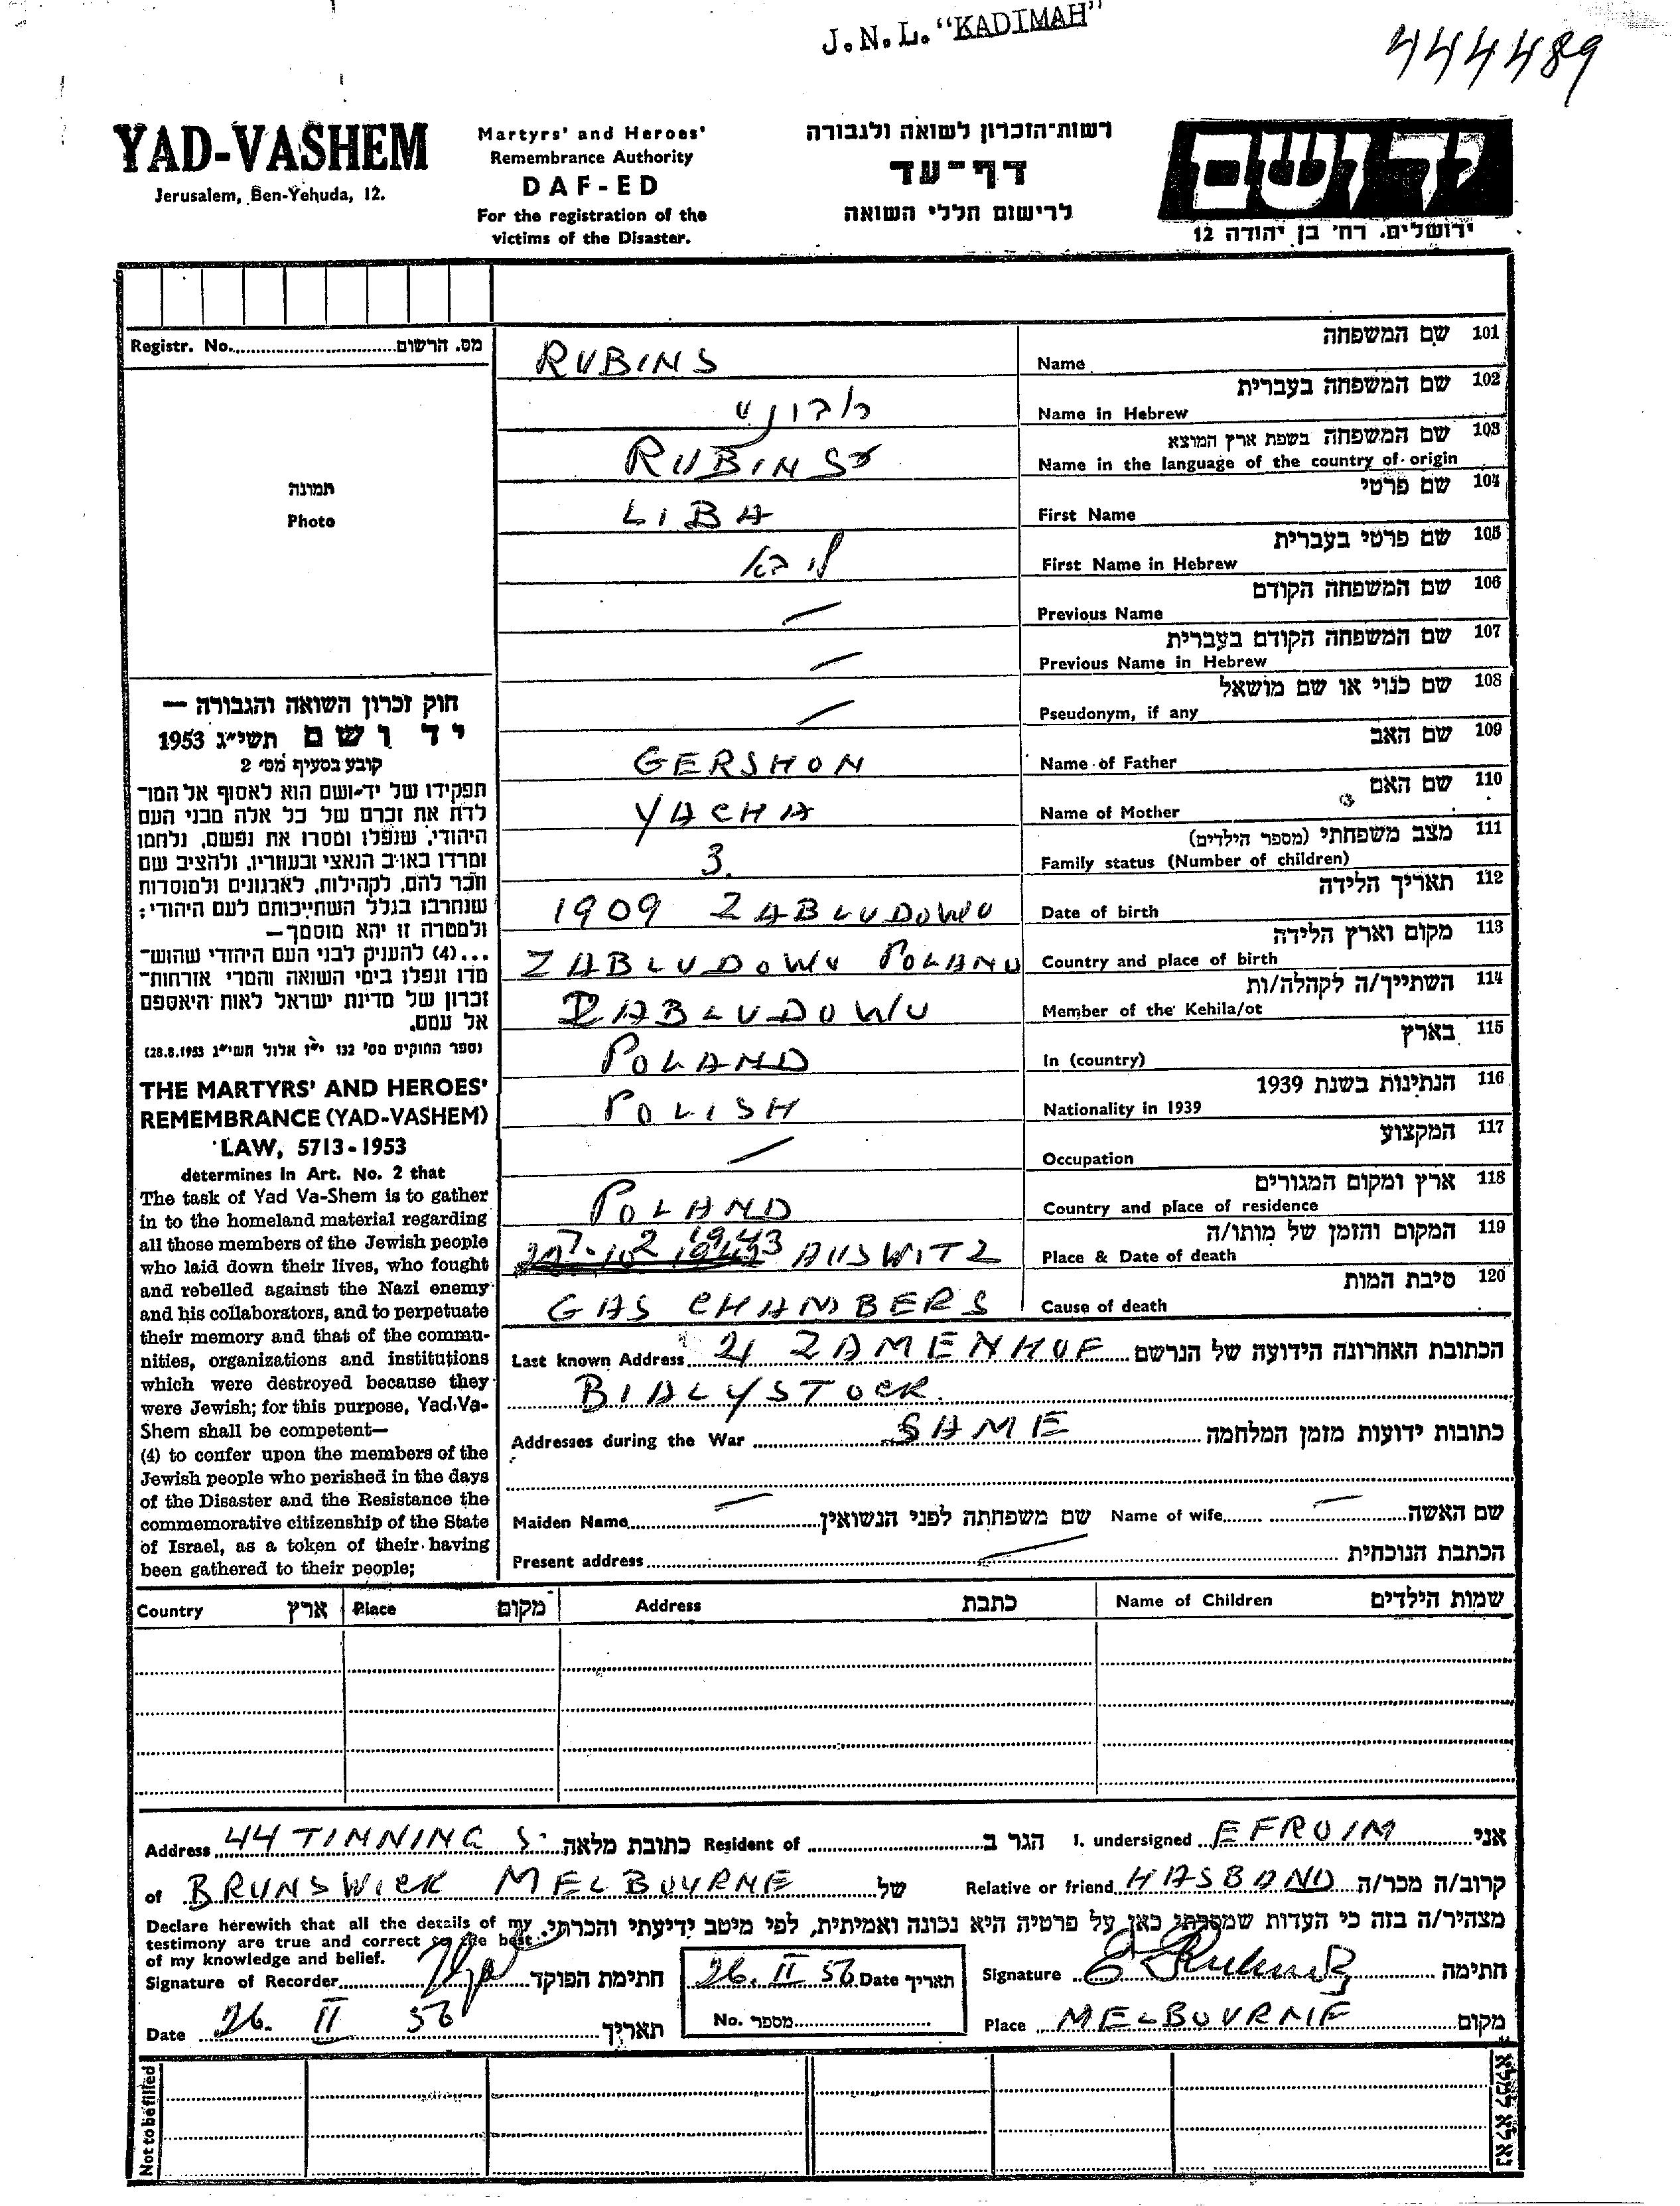 J.N.L. "KADIMAH"
444489
YAD-VASHEM
Jerusalem, Ben-Yehuda, 12.
Martyrs' and Heroes'
Remembrance Authority
DAF-ED
For the registration of the
victims of the Disaster.
רשות־הזכרון לשואה ולגבורה
דף־עד
לרישום חללי השואה
יד ושם
ירושלים. רח' בן יהודה 12
Registr. No. מס. הרשום
תמונה
Photo
RUBINS שם המשפחה 101
Name
שם המשפחה בעברית 102
Name in Hebrew
RUBINS שם המשפחה בשפת ארץ המוצא 103
Name in the language of the country of origin
LIBA שם פרטי 104
First Name
ליבא שם פרטי בעברית 105
First Name in Hebrew
שם המשפחה הקודם 106
Previous Name
שם המשפחה הקודם בעברית 107
Previous Name in Hebrew
שם כנוי או שם מושאל 108
Pseudonym, if any
GERSHON שם האב 109
Name of Father
YACHA שם האם 110
Name of Mother
3. מצב משפחתי (מספר הילדים) 111
Family status (Number of children)
1909 ZABLUDOWU תאריך הלידה 112
Date of birth
ZABLUDOWU POLAND מקום וארץ הלידה 113
Country and place of birth
ZABLUDOWU השתייך/ה לקהלה/ות 114
Member of the Kehila/ot
POLAND בארץ 115
In (country)
POLISH הנתינות בשנת 1939 116
Nationality in 1939
המקצוע 117
Occupation
POLAND ארץ ומקום המגורים 118
Country and place of residence
1943 AUSWITZ המקום והזמן של מותו/ה 119
Place & Date of death
GAS CHAMBERS סיבת המות 120
Cause of death
חוק זכרון השואה והגבורה —
יד ושם תשי"ג 1953
קובע בסעיף מס' 2
תפקידו של יד־ושם הוא לאסוף אל המו־
לדת את זכרם של כל אלה מבני העם
היהודי, שנפלו ומסרו את נפשם, נלחמו
ומרדו באויב הנאצי ובעוזריו, ולהציב שם
וזכר להם, לקהילות, לארגונים ולמוסדות
שנחרבו בגלל השתייכותם לעם היהודי;
ולמטרה זו יהא מוסמך—
...(4) להעניק לבני העם היהודי שהוש־
מדו ונפלו בימי השואה והמרי אזרחות־
זכרון של מדינת ישראל לאות היאספם
אל עמם.
(ספר החוקים מס' 132 י"ז אלול תשי"ג 28.8.1953)
THE MARTYRS' AND HEROES'
REMEMBRANCE (YAD-VASHEM)
LAW, 5713-1953
determines in Art. No. 2 that
The task of Yad Va-Shem is to gather
in to the homeland material regarding
all those members of the Jewish people
who laid down their lives, who fought
and rebelled against the Nazi enemy
and his collaborators, and to perpetuate
their memory and that of the commu-
nities, organizations and institutions
which were destroyed because they
were Jewish; for this purpose, Yad Va-
Shem shall be competent—
(4) to confer upon the members of the
Jewish people who perished in the days
of the Disaster and the Resistance the
commemorative citizenship of the State
of Israel, as a token of their having
been gathered to their people;
Last known Address 21 ZAMENHOF הכתובת האחרונה הידועה של הנרשם
BIALYSTOCK
Addresses during the War SAME כתובות ידועות מזמן המלחמה
Maiden Name שם משפחתה לפני הנשואין Name of wife שם האשה
Present address הכתבת הנוכחית
Country ארץ Place מקום Address כתבת Name of Children שמות הילדים
Address 44 TINNING S. כתובת מלאה Resident of הגר ב I, undersigned EFROIM אני
of BRUNSWICK MELBOURNE של Relative or friend HASBAND קרוב/ה מכר/ה
Declare herewith that all the details of my
testimony are true and correct to the best
of my knowledge and belief.
מצהיר/ה בזה כי העדות שמסרתי כאן על פרטיה היא נכונה ואמיתית, לפי מיטב ידיעתי והכרתי.
Signature of Recorder חתימת הפוקד 26. II 56 Date תאריך Signature חתימה
Date 26. II 56 תאריך No. מספר Place MELBOURNE מקום
Not to be filled
נא לא למלא